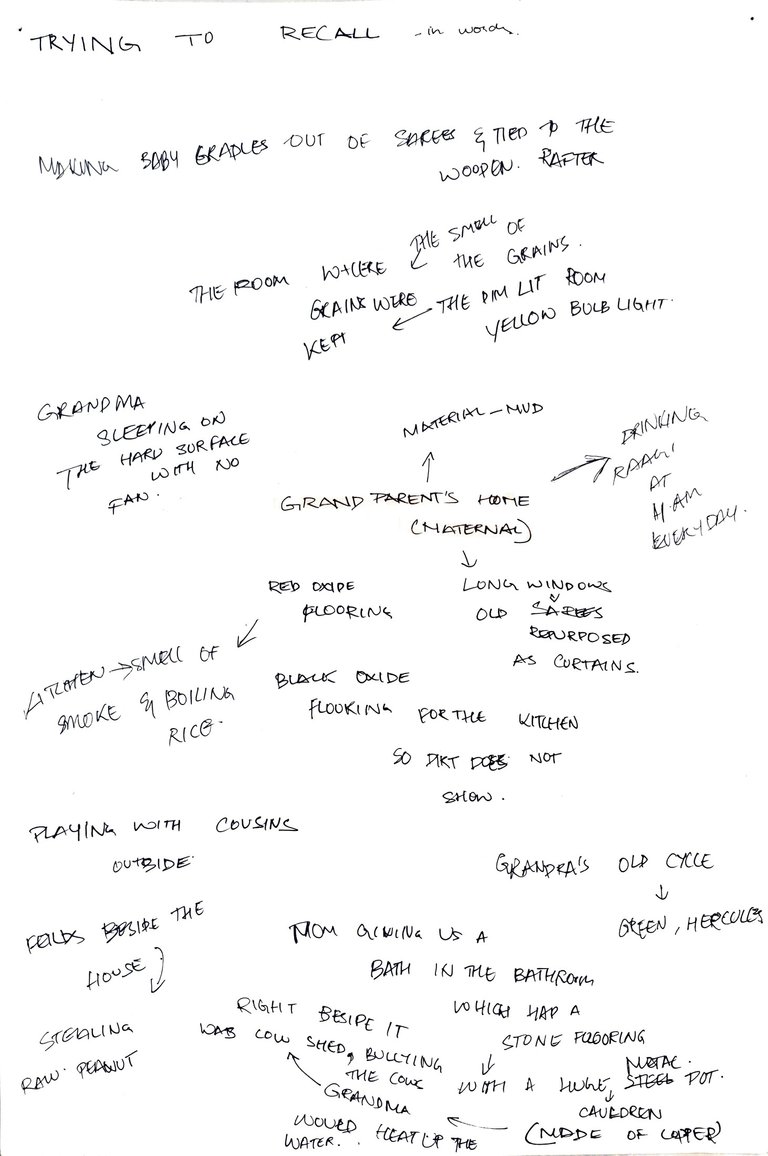 TRYING TO RECALL - in words.
MAKING BABY CRADLES OUT OF SAREES & TIED TO THE
WOODEN. RAFTER
THE SMELL OF
THE GRAINS.
THE ROOM WHERE
GRAINS WERE
KEPT
THE DIM LIT ROOM
YELLOW BULB LIGHT.
GRANDMA
SLEEPING ON
THE HARD SURFACE
WITH NO
FAN.
MATERIAL - MUD
DRINKING
RAAGI
AT
11 AM
EVERYDAY.
GRAND PARENT'S HOME
(MATERNAL)
RED OXIDE
FLOORING
LONG WINDOWS
OLD SAREES
REPURPOSED
AS CURTAINS.
KITCHEN → SMELL OF
SMOKE & BOILING
RICE.
BLACK OXIDE
FLOORING FOR THE KITCHEN
SO DIRT DOES NOT
SHOW.
PLAYING WITH COUSINS
OUTSIDE.
GRANDPA'S OLD CYCLE
GREEN, HERCULES
FEILDS BESIDE THE
HOUSE
STEALING
RAW PEANUT
MOM GIVING US A
BATH IN THE BATHROOM
WHICH HAD A
STONE FLOORING
WITH A HUGE, STEEL POT.
METAL.
CAULDREN
(MADE OF COPPER)
GRANDMA
WOULD HEAT UP THE
WATER.
RIGHT BESIDE IT
WAS COW SHED, BULLYING
THE COWS